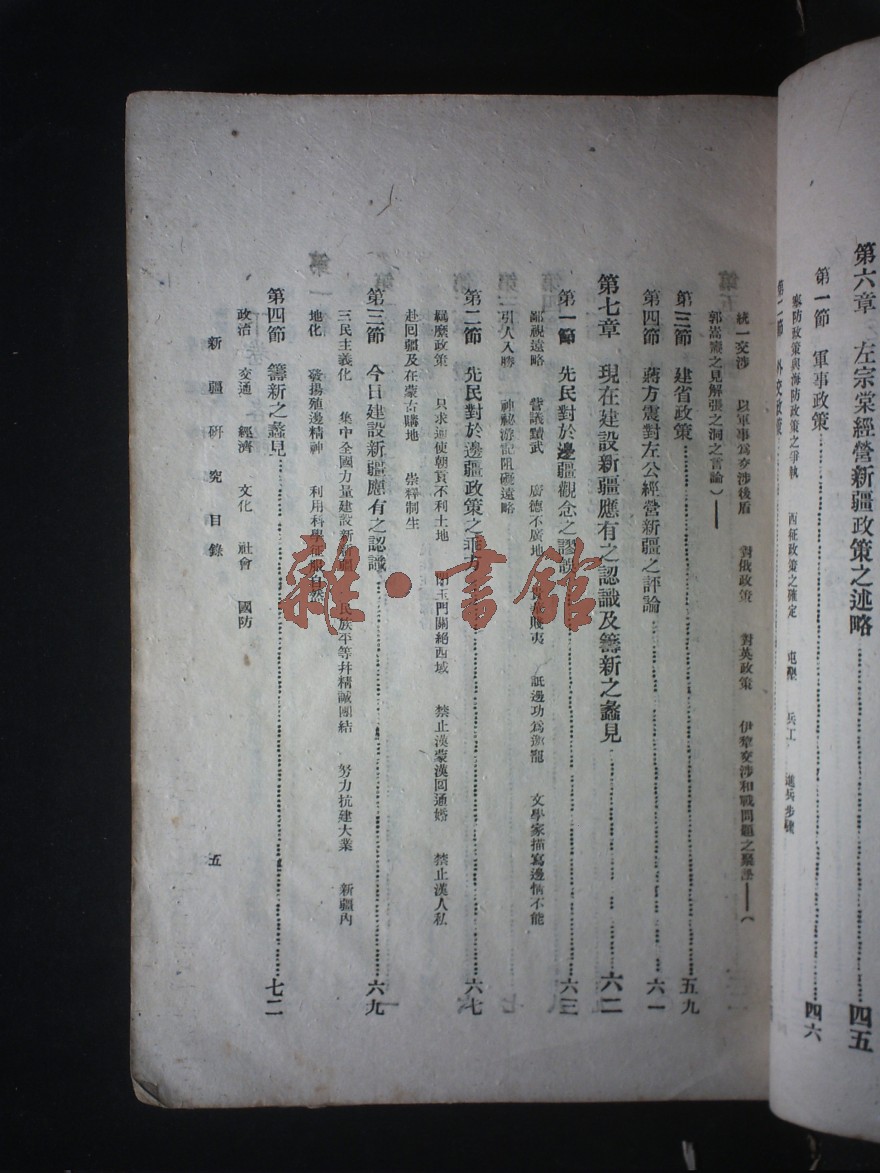 第六章　左宗棠經營新疆政策之述略……四五
第一節　軍事政策……四六
塞防政策與海防政策之爭執　西征政策之確定　屯墾　兵工　進兵步驟
第二節　外交政策
統一交涉　以軍事爲交涉後盾　對俄政策　對英政策　伊犂交涉和戰問題之聚訟——（
郭嵩燾之見解張之洞之言論）——
第三節　建省政策……五九
第四節　蔣方震對左公經營新疆之評論……六一
第七章　現在建設新疆應有之認識及籌新之蠡見……六二
第一節　先民對於邊疆觀念之謬誤……六三
鄙視遠略　訾議黷武　廣德不廣地　貴華賤夷　詆邊功爲邀寵　文學家描寫邊情不能
引人入勝　神祕游記阻礙遠略
第二節　先民對於邊疆政策之乖方……六七
羈縻政策　只求通使朝貢不利土地　閉玉門關絕西域　禁止漢蒙漢回通婚　禁止漢人私
赴回疆及在蒙古購地　崇釋制生
第三節　今日建設新疆應有之認識……六九
三民主義化　集中全國力量建設新新疆　民族平等幷精誠團結　努力抗建大業　新疆內
地化　發揚殖邊精神　利用科學征服自然
第四節　籌新之蠡見……七二
政治　交通　經濟　文化　社會　國防
新疆研究目錄　五
雜·書館